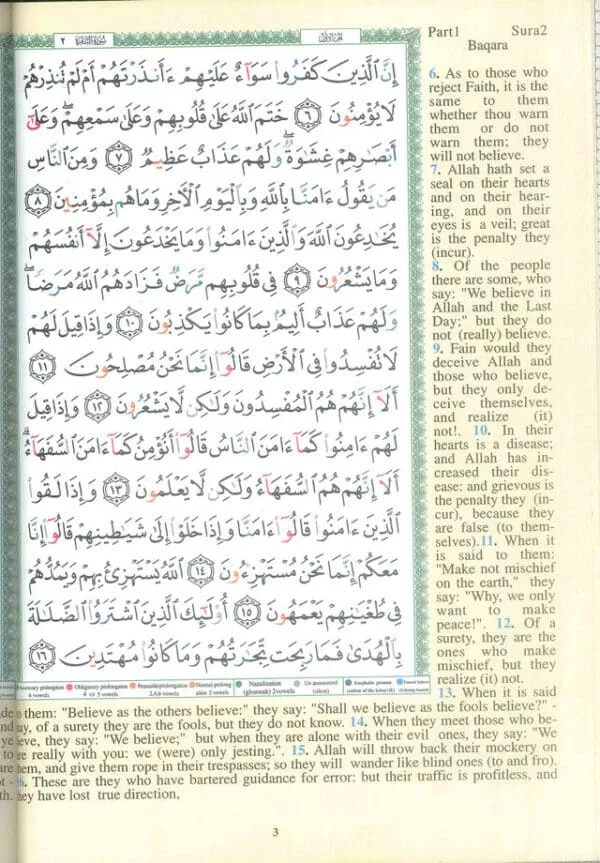 ٢ سورة البقرة
الجزء الأول
Part1 Sura2
Baqara
إِنَّ ٱلَّذِينَ كَفَرُوا۟ سَوَآءٌ عَلَيْهِمْ ءَأَنذَرْتَهُمْ أَمْ لَمْ تُنذِرْهُمْ
لَا يُؤْمِنُونَ ٦ خَتَمَ ٱللَّهُ عَلَىٰ قُلُوبِهِمْ وَعَلَىٰ سَمْعِهِمْ ۖ وَعَلَىٰٓ
أَبْصَٰرِهِمْ غِشَٰوَةٌ ۖ وَلَهُمْ عَذَابٌ عَظِيمٌ ٧ وَمِنَ ٱلنَّاسِ
مَن يَقُولُ ءَامَنَّا بِٱللَّهِ وَبِٱلْيَوْمِ ٱلْءَاخِرِ وَمَا هُم بِمُؤْمِنِينَ ٨
يُخَٰدِعُونَ ٱللَّهَ وَٱلَّذِينَ ءَامَنُوا۟ وَمَا يَخْدَعُونَ إِلَّآ أَنفُسَهُمْ
وَمَا يَشْعُرُونَ ٩ فِى قُلُوبِهِم مَّرَضٌ فَزَادَهُمُ ٱللَّهُ مَرَضًا ۖ
وَلَهُمْ عَذَابٌ أَلِيمٌۢ بِمَا كَانُوا۟ يَكْذِبُونَ ١٠ وَإِذَا قِيلَ لَهُمْ
لَا تُفْسِدُوا۟ فِى ٱلْأَرْضِ قَالُوٓا۟ إِنَّمَا نَحْنُ مُصْلِحُونَ ١١
أَلَآ إِنَّهُمْ هُمُ ٱلْمُفْسِدُونَ وَلَٰكِن لَّا يَشْعُرُونَ ١٢ وَإِذَا قِيلَ
لَهُمْ ءَامِنُوا۟ كَمَآ ءَامَنَ ٱلنَّاسُ قَالُوٓا۟ أَنُؤْمِنُ كَمَآ ءَامَنَ ٱلسُّفَهَآءُ ۗ
أَلَآ إِنَّهُمْ هُمُ ٱلسُّفَهَآءُ وَلَٰكِن لَّا يَعْلَمُونَ ١٣ وَإِذَا لَقُوا۟
ٱلَّذِينَ ءَامَنُوا۟ قَالُوٓا۟ ءَامَنَّا وَإِذَا خَلَوْا۟ إِلَىٰ شَيَٰطِينِهِمْ قَالُوٓا۟ إِنَّا
مَعَكُمْ إِنَّمَا نَحْنُ مُسْتَهْزِءُونَ ١٤ ٱللَّهُ يَسْتَهْزِئُ بِهِمْ وَيَمُدُّهُمْ
فِى طُغْيَٰنِهِمْ يَعْمَهُونَ ١٥ أُو۟لَٰٓئِكَ ٱلَّذِينَ ٱشْتَرَوُا۟ ٱلضَّلَٰلَةَ
بِٱلْهُدَىٰ فَمَا رَبِحَت تِّجَٰرَتُهُمْ وَمَا كَانُوا۟ مُهْتَدِينَ ١٦
6. As to those who
reject Faith, it is the
same to them
whether thou warn
them or do not
warn them; they
will not believe.
7. Allah hath set a
seal on their hearts
and on their hear-
ing, and on their
eyes is a veil; great
is the penalty they
(incur).
8. Of the people
there are some, who
say: "We believe in
Allah and the Last
Day;" but they do
not (really) believe.
9. Fain would they
deceive Allah and
those who believe,
but they only de-
ceive themselves,
and realize (it)
not!. 10. In their
hearts is a disease;
and Allah has in-
creased their dis-
ease: and grievous is
the penalty they (in-
cur), because they
are false (to them-
selves).11. When it
is said to them:
"Make not mischief
on the earth," they
say: "Why, we only
want to make
peace!". 12. Of a
surety, they are the
ones who make
mischief, but they
realize (it) not.
13. When it is said
to them: "Believe as the others believe:" they say: "Shall we believe as the fools believe?" -
nay, of a surety they are the fools, but they do not know. 14. When they meet those who be-
lieve, they say: "We believe;" but when they are alone with their evil ones, they say: "We
are really with you: we (were) only jesting.". 15. Allah will throw back their mockery on
them, and give them rope in their trespasses; so they will wander like blind ones (to and fro).
16. These are they who have bartered guidance for error: but their traffic is profitless, and
they have lost true direction,
Necessary prolongation 6 vowels
Obligatory prolongation 4 or 5 vowels
Permissible prolongation 2,4,6 vowels
Normal prolongation 2 vowels
Nasalization (ghunnah) 2vowels
Un announced (silent)
3